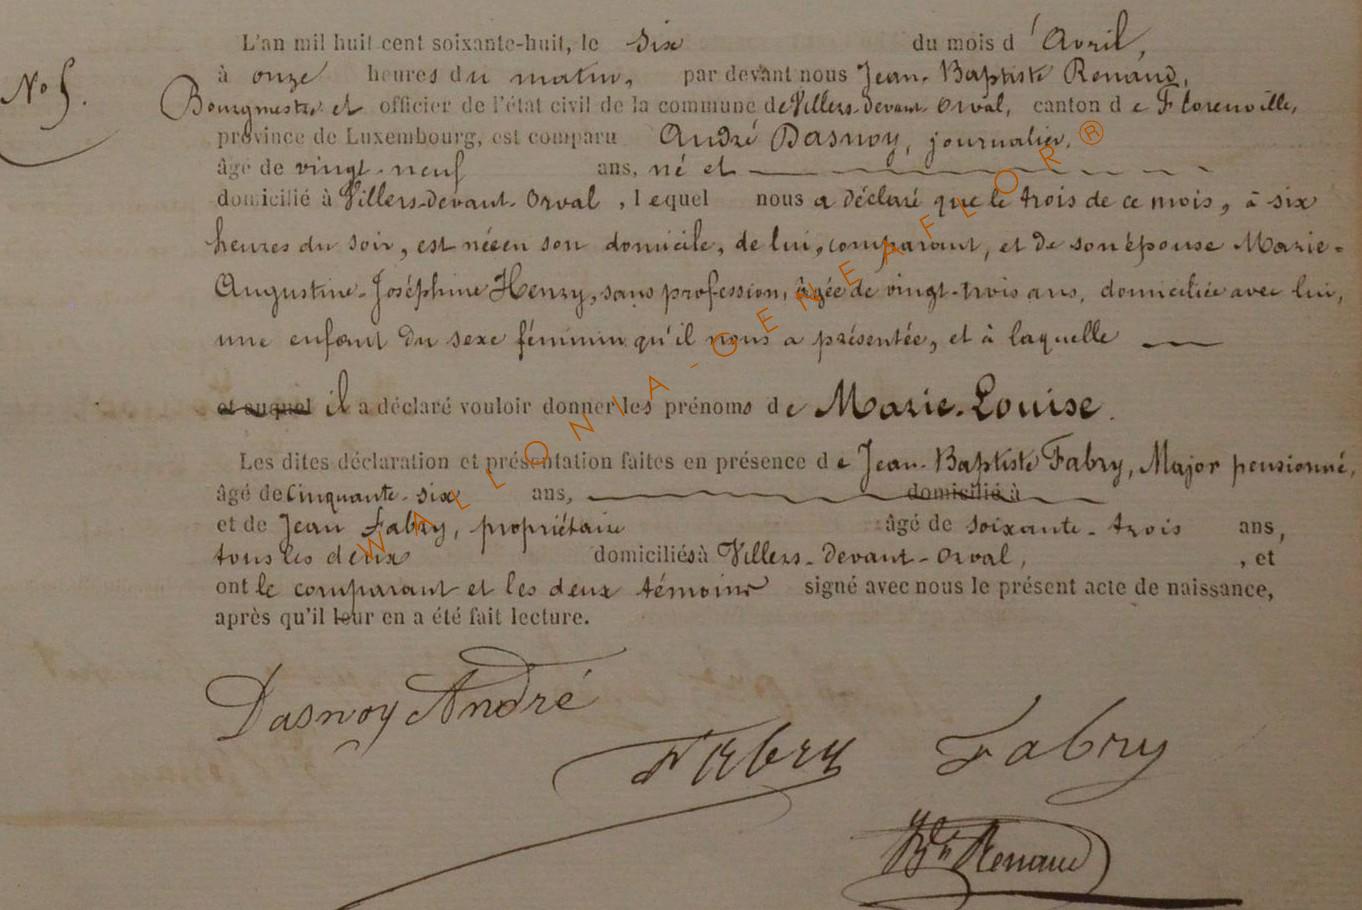 L'an mil huit cent soixante-huit, le six du mois d'Avril,
No 5.
à onze heures du matin, par devant nous Jean-Baptiste Renaud,
Bourgmestre et officier de l'état civil de la commune de Villers-devant-Orval, canton de Florenville,
province de Luxembourg, est comparu André Dasnoy, journalier,
âgé de vingt-neuf ans, né et
domicilié à Villers-devant-Orval, lequel nous a déclaré que le trois de ce mois, à six
heures du soir, est née en son domicile, de lui, comparant, et de son épouse Marie-
Augustine-Joséphine Henry, sans profession, âgée de vingt-trois ans, domiciliée avec lui,
une enfant du sexe féminin qu'il nous a présentée, et à laquelle
et auquel il a déclaré vouloir donner les prénoms de Marie-Louise.
Les dites déclaration et présentation faites en présence de Jean-Baptiste Fabry, Major pensionné,
âgé de cinquante-six ans, domicilié à
et de Jean Fabry, propriétaire âgé de soixante-trois ans,
tous les deux domiciliés à Villers-devant-Orval, , et
ont le comparant et les deux témoins signé avec nous le présent acte de naissance,
après qu'il leur en a été fait lecture.
Dasnoy André
Fabry Fabry
Bte Renaud
WALLONIA-GENEAFLOR®